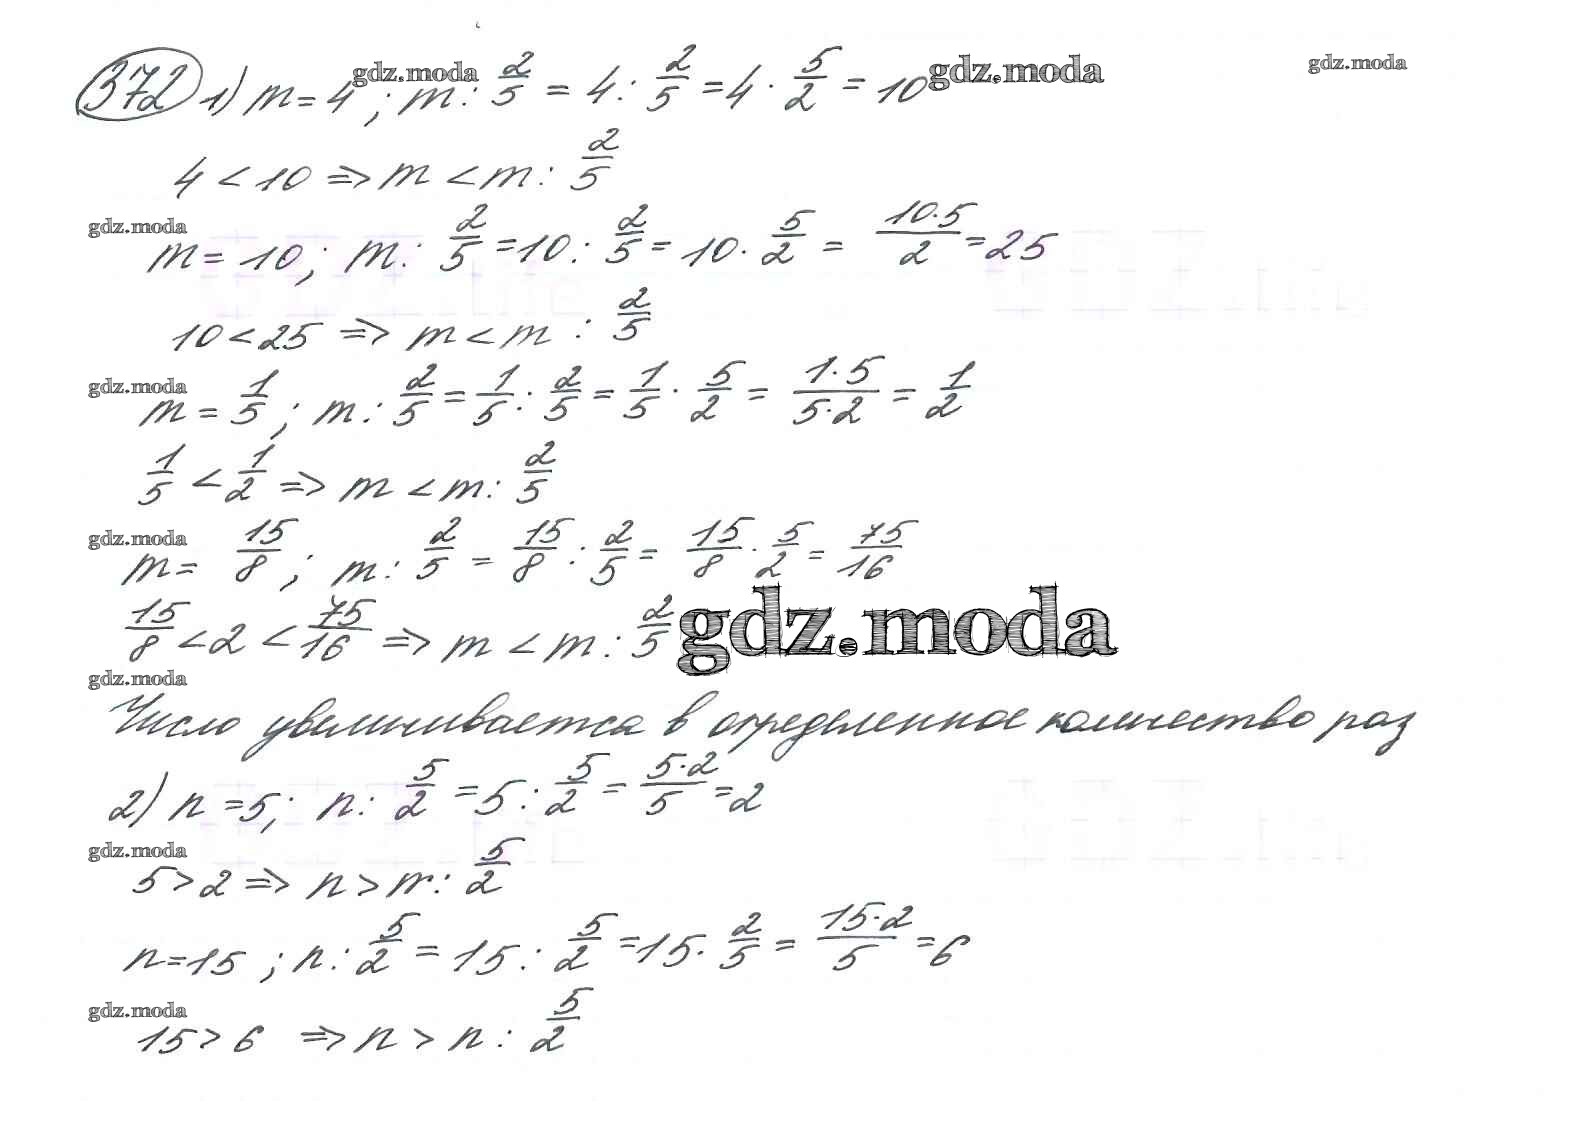 372 1) m = 4; m : 2/5 = 4 : 2/5 = 4 · 5/2 = 10
gdz.moda gdz.moda gdz.moda
4 < 10 => m < m : 2/5
gdz.moda
m = 10; m : 2/5 = 10 : 2/5 = 10 · 5/2 = 10·5/2 = 25
10 < 25 => m < m : 2/5
gdz.moda
m = 1/5; m : 2/5 = 1/5 : 2/5 = 1/5 · 5/2 = 1·5/5·2 = 1/2
1/5 < 1/2 => m < m : 2/5
gdz.moda
m = 15/8; m : 2/5 = 15/8 : 2/5 = 15/8 · 5/2 = 75/16
15/8 < 2 < 75/16 => m < m : 2/5
gdz.moda
gdz.moda
Число увеличивается в определенное количество раз
2) n = 5; n : 5/2 = 5 : 5/2 = 5·2/5 = 2
gdz.moda
5 > 2 => n > n : 5/2
n = 15; n : 5/2 = 15 : 5/2 = 15 · 2/5 = 15·2/5 = 6
gdz.moda
15 > 6 => n > n : 5/2